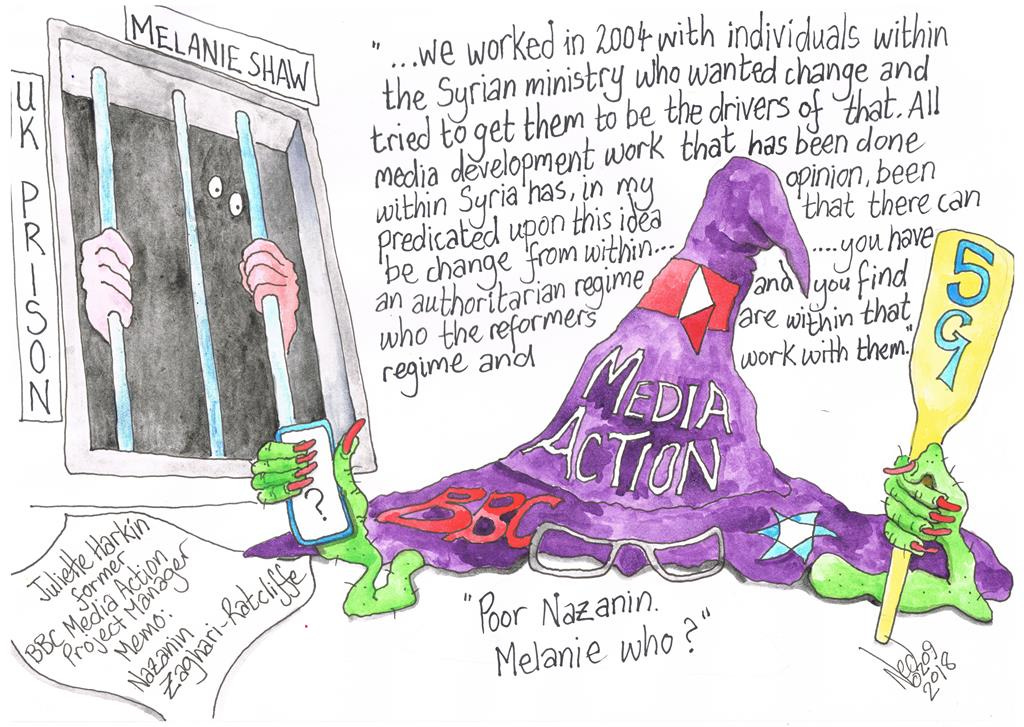 MELANIE SHAW
UK PRISON
"...we worked in 2004 with individuals within
the Syrian ministry who wanted change and
tried to get them to be the drivers of that. All
media development work that has been done
within Syria has, in my opinion, been
predicated upon this idea that there can
be change from within... ....you have
an authoritarian regime and you find
who the reformers are within that
regime and work with them."
5G
MEDIA
ACTION
BBC
?
"Poor Nazanin.
Melanie who?"
Juliette Harkin
former
BBC Media Action
Project Manager
Memo:
Nazanin
Zaghari-Ratcliffe
Neo
0209
2018